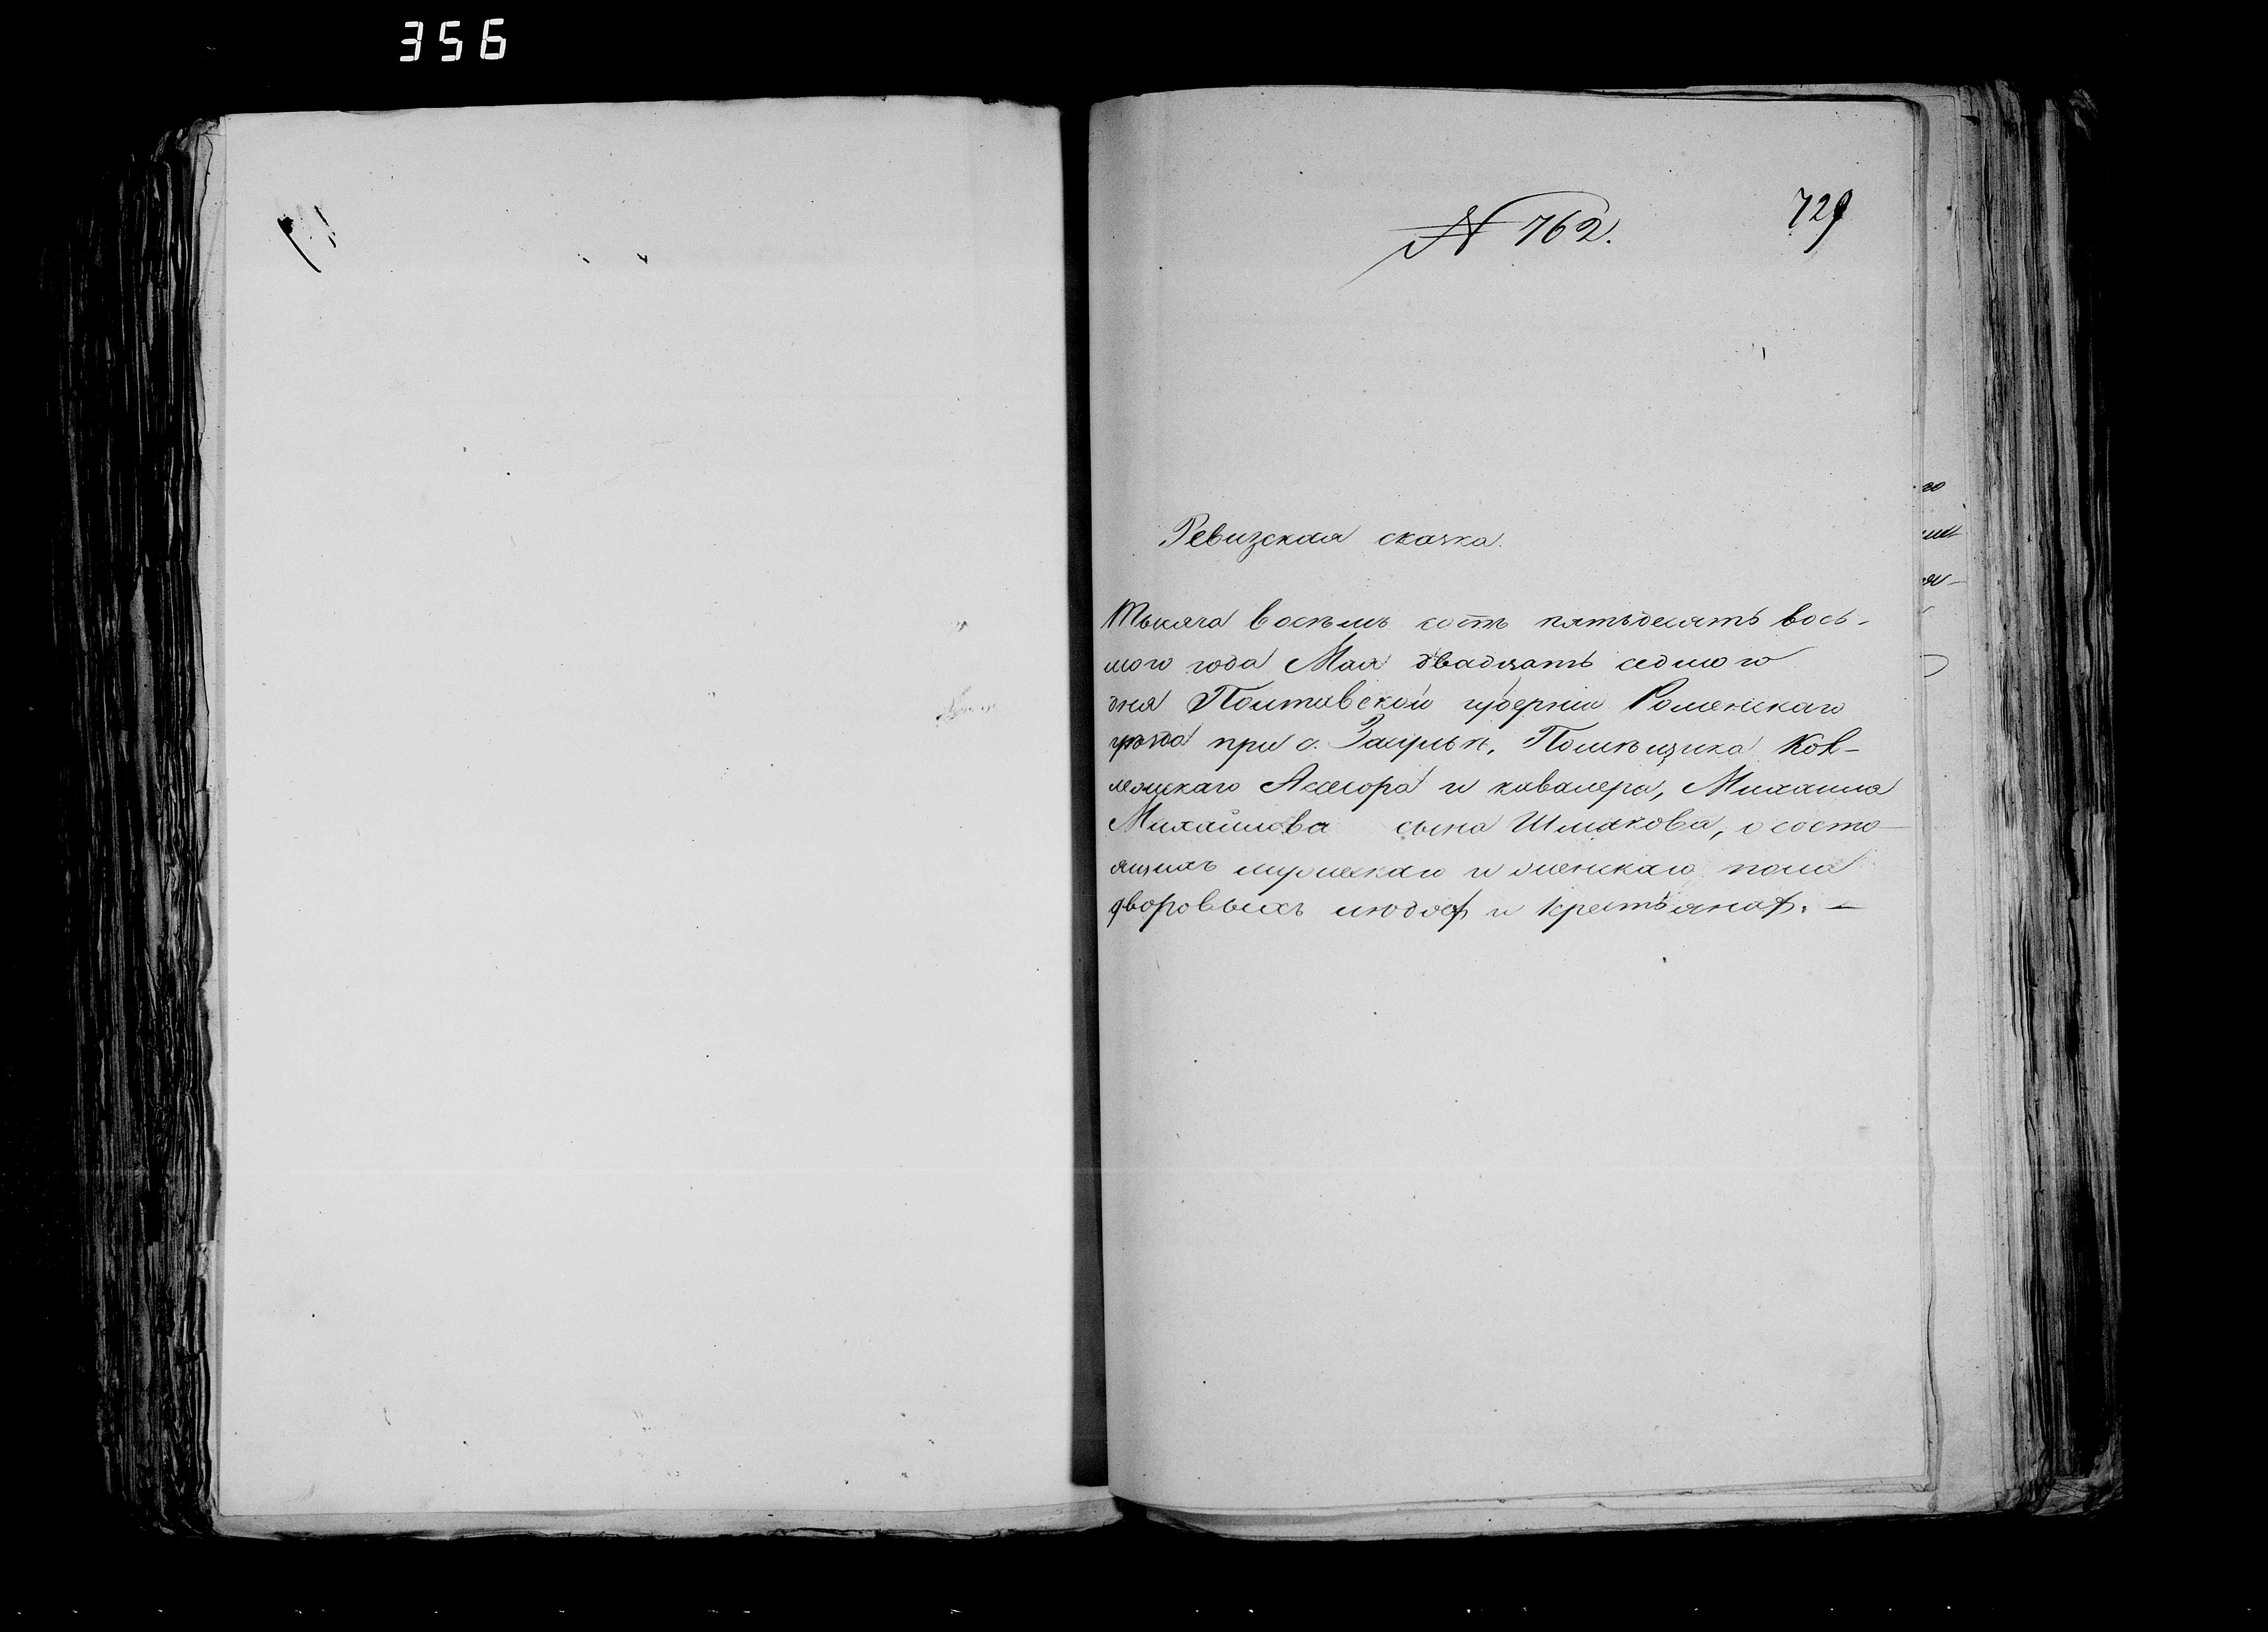 356
№ 762.
729
Ревизская сказка.
Тысяча восемь сотъ пятьдесятъ вось-
мого года Мая двадцать седмого
дня Полтавской губерніи Роменскаго
уѣзда при с. Помѣщика Кол-
лежскаго Асессора и кавалера, Михаила
Михайлова сына Шлякова, о состо-
ящихъ мужескаго и женскаго пола
дворовыхъ людяхъ и крестьянахъ. —